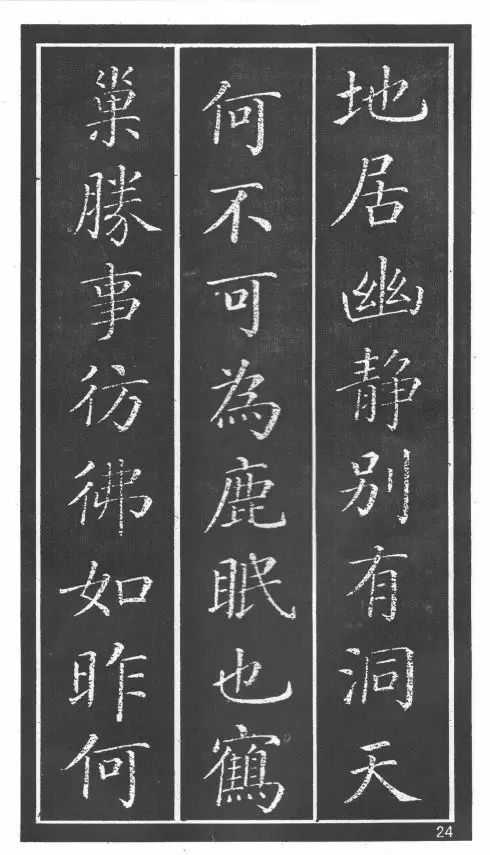 地居幽静别有洞天
何不可為鹿眠也寉鳥
巢勝事彷彿如昨何
24